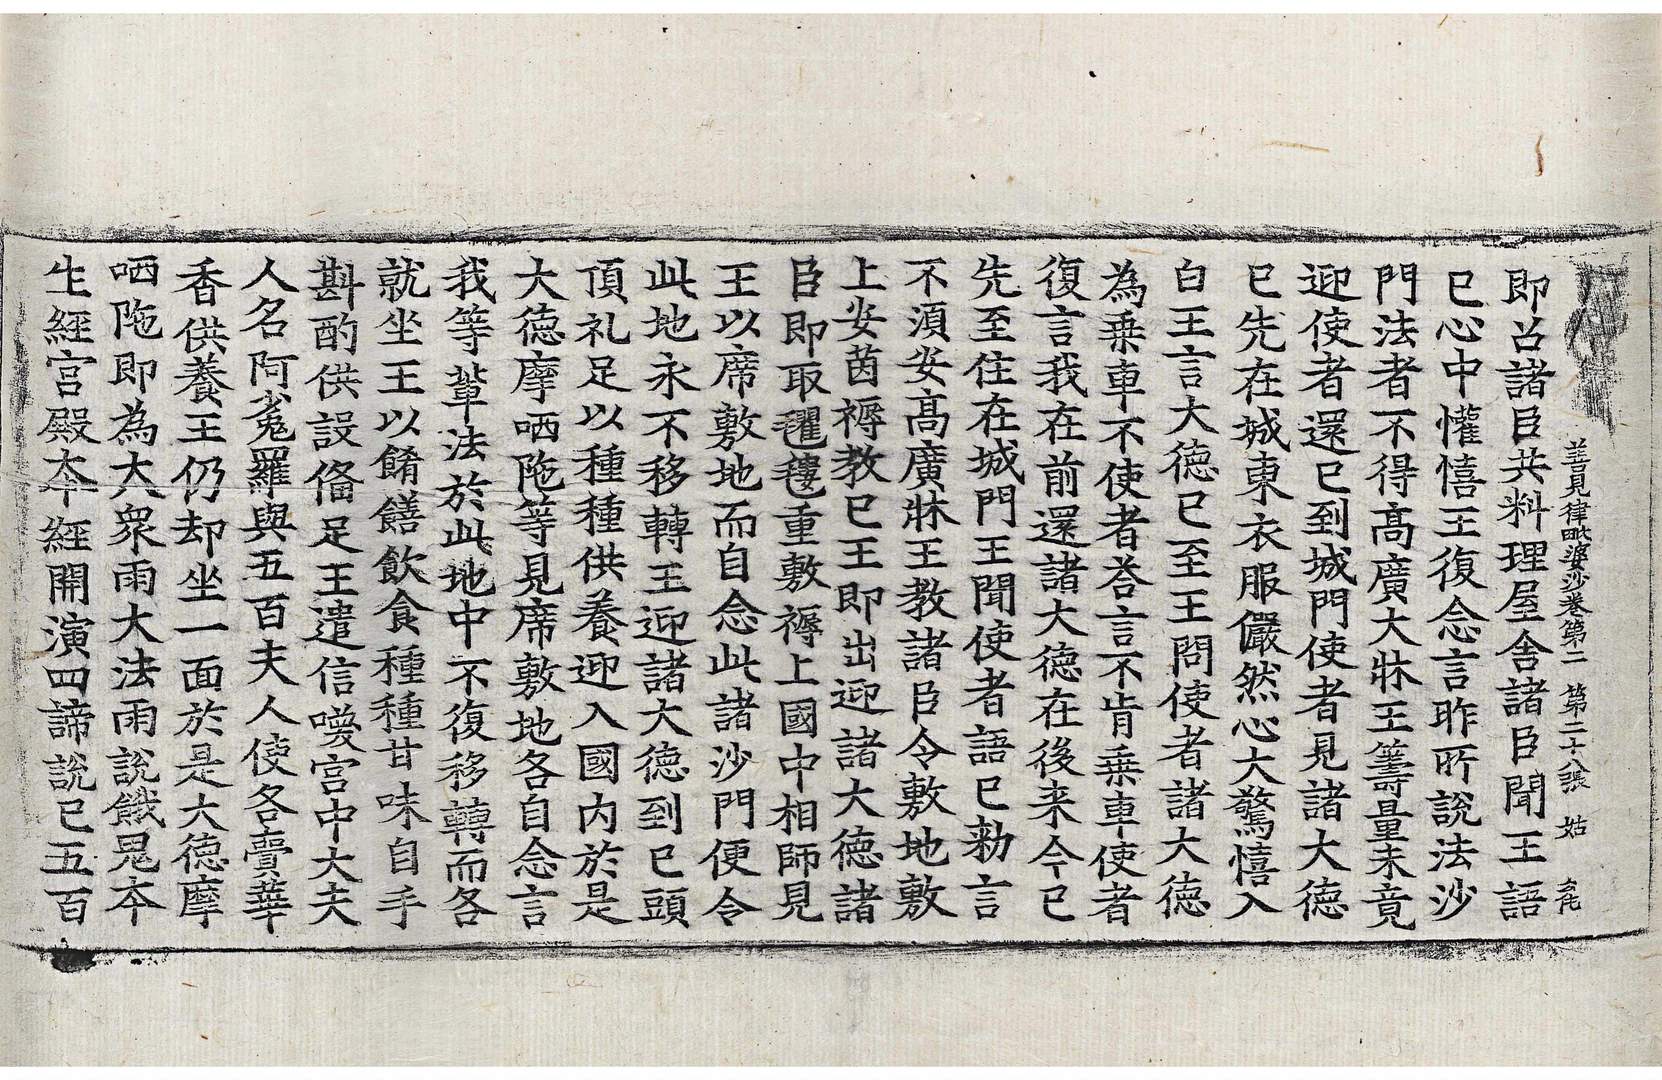 善見律毗婆沙卷第二 第二十八張 姑
即召諸臣共料理屋舍諸臣聞王語
已心中懽憘王復念言昨所說法沙
門法者不得髙廣大牀王籌量未竟
迎使者還已到城門使者見諸大德
已先在城東衣服儼然心大驚憘入
白王言大德已至王問使者諸大德
為乗車不使者荅言不肯乗車使者
復言我在前還諸大德在後来今已
先至住在城門王聞使者語已勑言
不湏安髙廣牀王教諸臣令敷地敷
上安茵褥教已王即出迎諸大德諸
臣即取氍氀重敷褥上國中相師見
王以席敷地而自念此諸沙門便令
此地永不移轉王迎諸大德到已頭
頂礼足以種種供養迎入國内於是
大德摩哂陁等見席敷地各自念言
我等輩法於此地中不復移轉而各
就坐王以餚饍飲食種種甘味自手
斟酌供設俻足王遣信喚宫中大夫
人名阿㝹羅與五百夫人使各賫華
香供養王仍却坐一面於是大德摩
哂陁即為大衆雨大法雨說餓鬼夲
生經宫殿夲經開演四諦說已五百